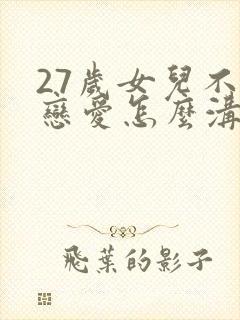 27歲女兒不
戀愛怎麼溝
飛葉的影子